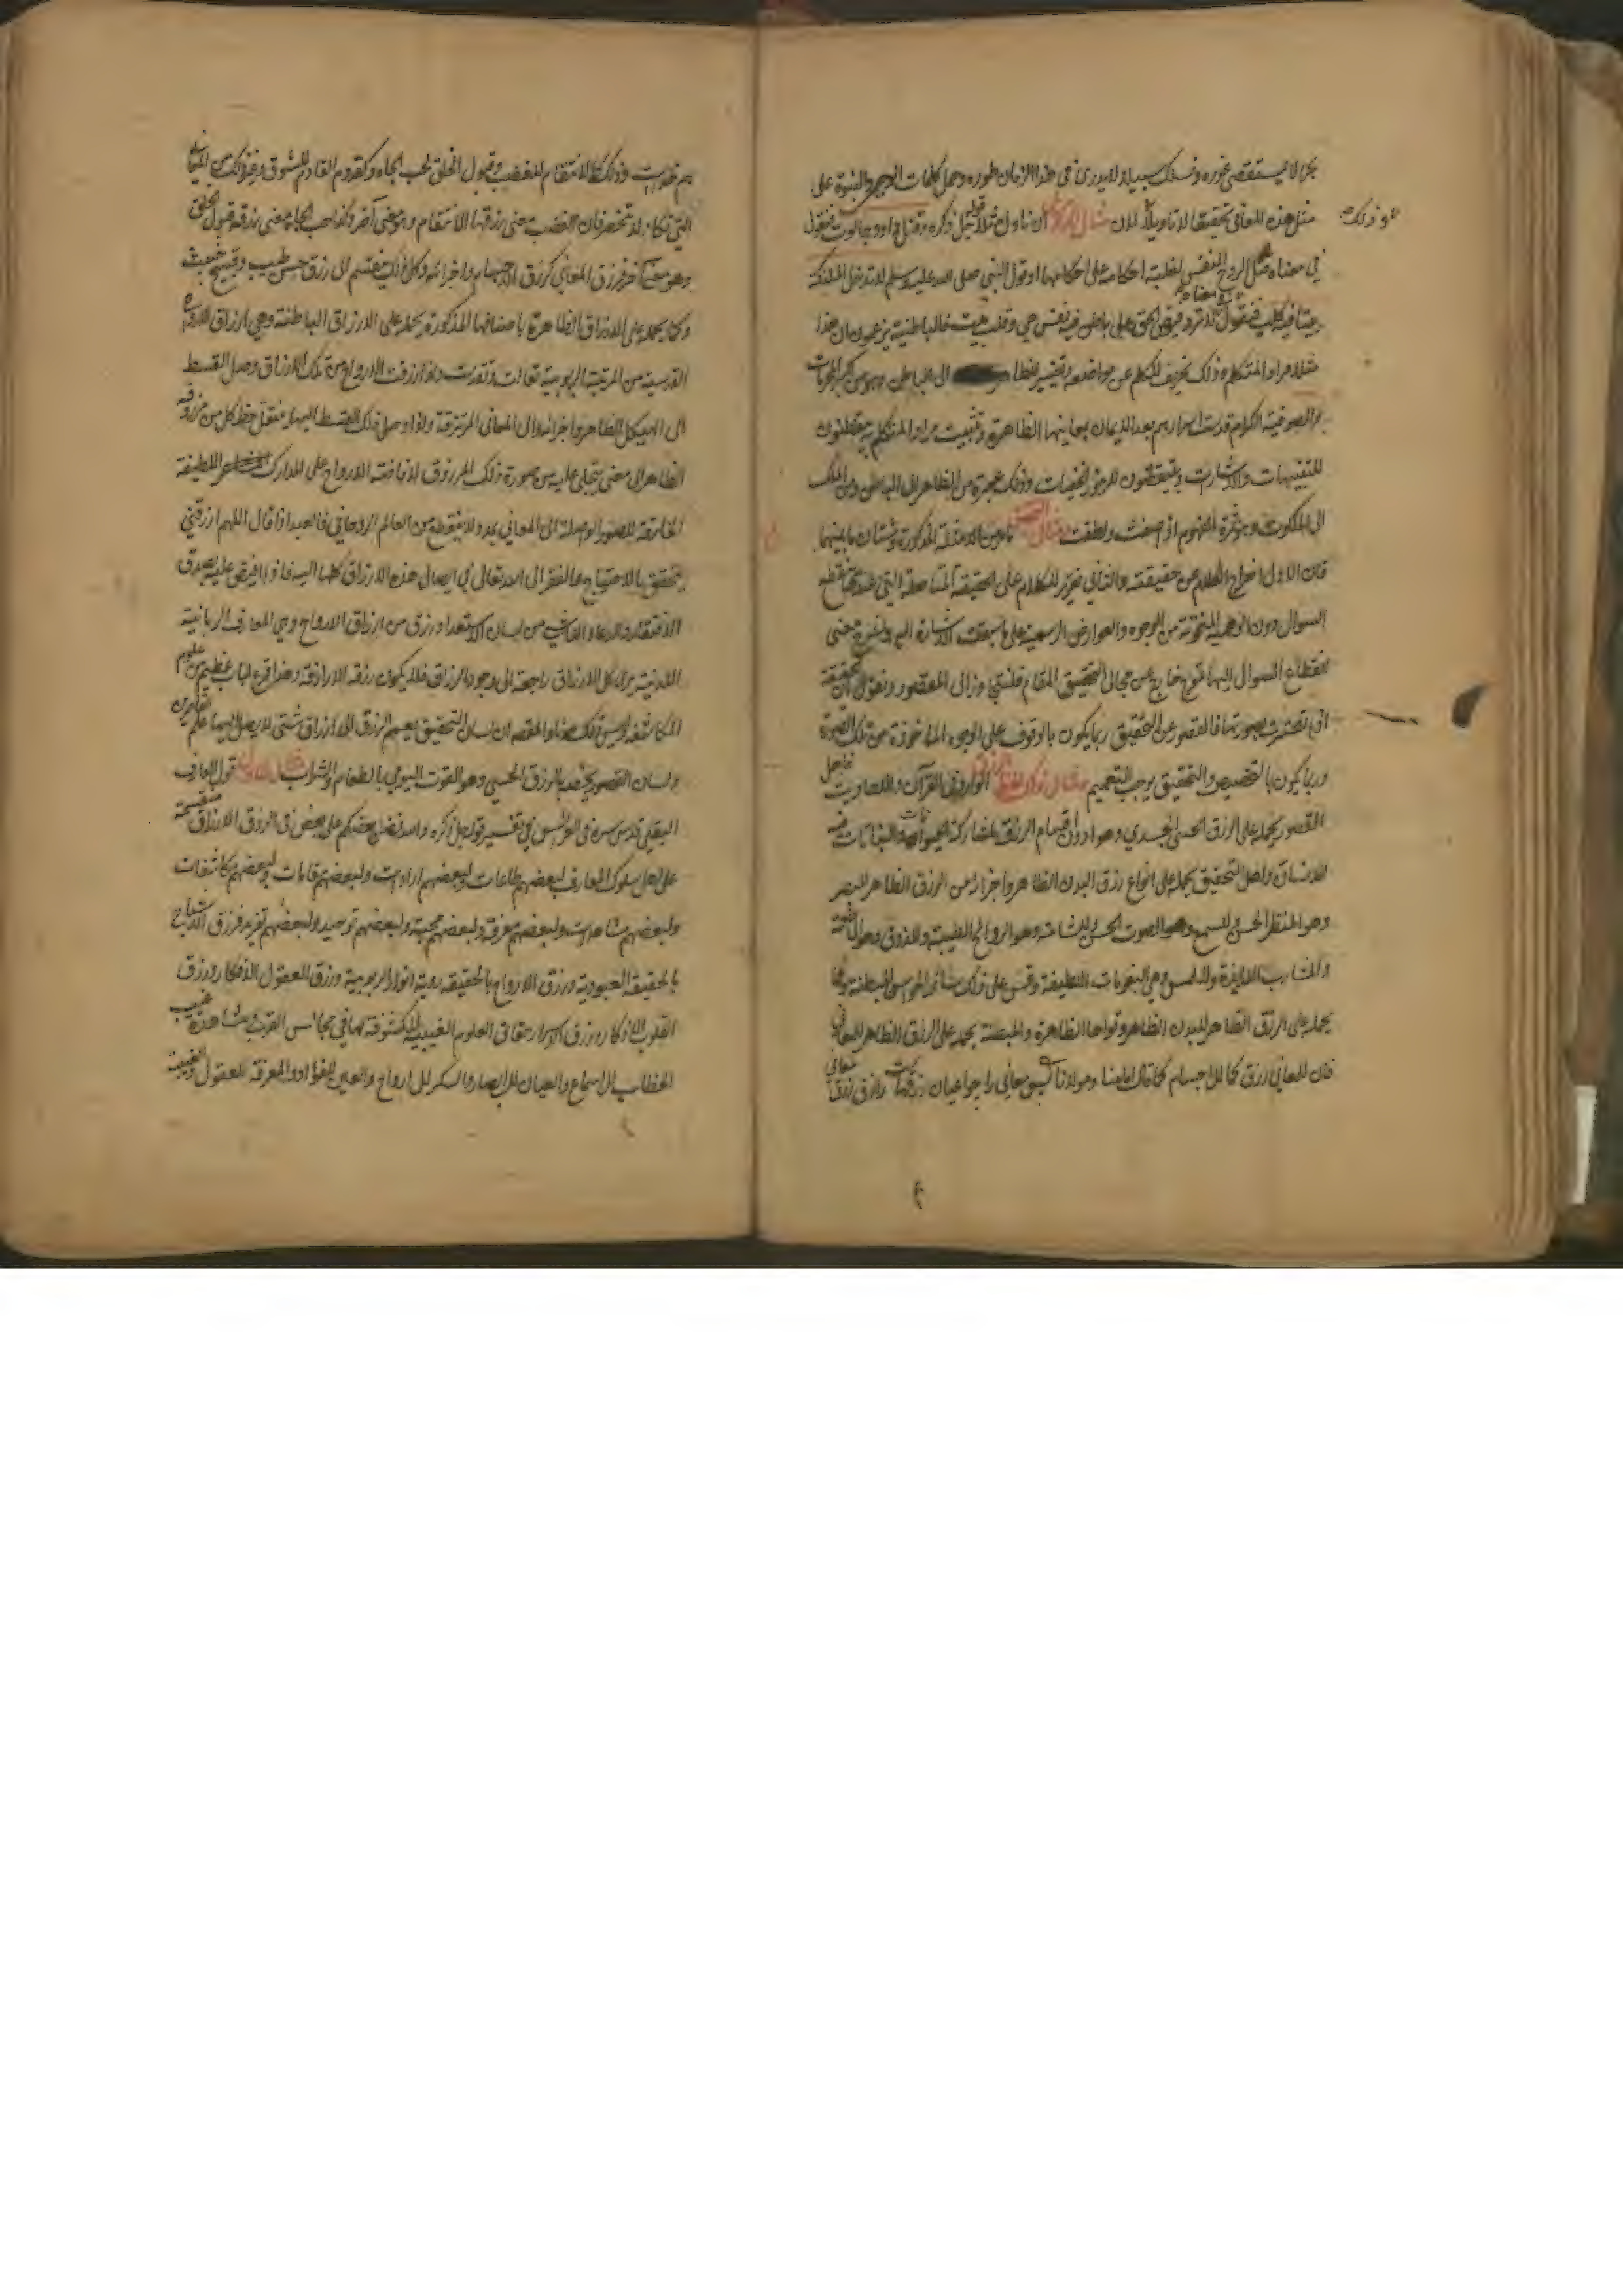 بحر لا يستقصى غوره وفسلك سبيلا لا يدرى في هذا الزمان طوره وحمل كلمات الوحي والنبوة على
مثل هذه المعاني تحقيقا لا تاويلا لان مثال ان تاول مثلا قوله جل ذكره وقتل داود جالوت فنقول
في معناه قتل الروح النفس لغلبة احكامه على احكامها او قول النبي صلى الله عليه وسلم لا تدخل الملائكة
بيتا فيه كلب فنقول معناه لا ترد فيوض الحق على باطن فيه نفس حي وقلب ميت فالباطنية يزعمون ان هذا
مثلا مراد المتكلم وذلك تحريف للكلم عن مواضعه وتغيير للظاهر الى الباطن وهو من
والصوفية الكرام قدست اسرارهم بعد الاذعان بمعانيها الظاهرة وتثبيت مراد المتكلم يتفطنون
للتنبيهات والاشارات ويتيقظون للرموز الخفيات وذلك عبرة من الظاهر الى الباطن ومن الملك
الى الملكوت وهو ثمرة الفهوم اذا صفت ولطفت مثال ما من الامثلة المذكورة وشتان ما بينهما
فان الاول اخراج الكلام عن حقيقته والثاني تقرير للكلام على الحقيقة المتاصلة التي عندها ينقطع
السوال دون الوهمية المنحوتة من الوجوه والعوارض الرسمية على ما سبقت الاشارة اليه ولشرح معنى
انقطاع السوال اليها نوع خارج عن مجال التحقيق المقام فلنتجاوز الى المقصود ونقول ان الحقيقة
اذا تصورت بصورتها فالقصور عن التحقيق ربما يكون بالوقوف على الوجوه الماخوذة من تلك الصورة
وربما يكون بالتخصيص والتحقيق يوجب التعميم مثال ذلك لفظ الوارد في القرآن والاحاديث فاهل
القصور يحمله على الرزق الحسي الجسدي وهو ادون اقسام الرزق لمشاركة الحيوانات والنباتات فيه
للانسان واهل التحقيق يحمله على انواع رزق البدن الظاهر واجزائه من الرزق الظاهر للبصر
وهو المنظر الحسن وللسمع وهو الصوت الحسن وللشامة وهو الروائح الطيبة وللذوق وهو الاطعمة
والمشارب اللذيذة وللمس وهي النعومات اللطيفة وقس على ذلك سائر الحواس الباطنة وكما
يحمله على الرزق الظاهر للبدن الظاهر وقواها الظاهرة والباطنة يحمله على الرزق الظاهر للمعاني
فان للمعاني رزق كما للاجسام كما قال امامنا ومولانا معاني را چو اعيان رزقهاست رازق رزق معاني
هم خداست وذلك كالانتقام للغضب وقبول الخلق لحب الجاه وكقدوم القادم للشوق وغير ذلك من المعاني
التي تكاد لا تنحصر فان الغضب معنى رزقها الانتقام وهو معنى آخر وكذا حب الجاه معنى رزقه قبول الخلق
وهو معنى آخر فرزق المعاني كرزق الاجسام واجزائه وكل ذلك ينقسم الى رزق حسن طيب وقبيح خبيث
وكما يحمله على الارزاق الظاهرة باصنافها المذكورة يحمله على الارزاق الباطنة وهي ارزاق الارواح
القدسية من المرتبة الربوبية تعالت وتقدست واذا رزقت الارواح من تلك الارزاق وصل القسط
الى الهيكل الظاهر واجزائه والى المعاني المرتزقة واذا وصل ذلك القسط اليها ينتقل حظ كل من مرزوقه
الظاهر الى معنى يتجلى عليه من صورة ذلك المرزوق لافاضة الارواح على المدارك اللطيفة
الخارقة للصور الواصلة الى المعاني مددا لا ينقطع من العالم الروحاني فالعبد اذا قال اللهم ارزقني
يتحقق بالاحتياج والفقر الى الله تعالى في ايصال هذه الارزاق كلها اليه فاذا يفيض عليه بصدق
الافتقار والدعاء الناشي من لسان الاستعداد رزق من ارزاق الارواح وهي المعارف الربانية
اللدنية يرى كل الارزاق راجعة الى وجود الرزاق فلا يكون رزقه الا رازقه وهذا قرع لباب عظيم من علوم
المكاشفة وليس ذلك هنا والمقصد ان لسان التحقيق يعمم الرزق الى ارزاق شتى لا يصل اليها علم القاصرين
ولسان القصور يخصه بالرزق الحسي وهو القوت اليومي بالطعام والشراب قول العارف
البقلي قدس سره في العرائس في تفسير قوله جل ذكره والله فضل بعضكم على بعض في الرزق الارزاق منقسمة
على اهل سلوك المعارف لبعضهم طاعات ولبعضهم ارادات ولبعضهم مقامات ولبعضهم مكاشفات
ولبعضهم مشاهدات ولبعضهم معرفة ولبعضهم محبة ولبعضهم توحيد ولبعضهم تفريد فرزق الاشباح
بالحقيقة العبودية ورزق الارواح بالحقيقة روية انوار الربوبية ورزق العقول الافكار ورزق
القلوب الاذكار ورزق الاسرار حقائق العلوم الغيبية المكشوفة لها في مجالس القرب ومشاهدة الغيب
الخطاب للاسماع والعيان للابصار والسكر للارواح والعين للفؤاد والمعرفة للعقول